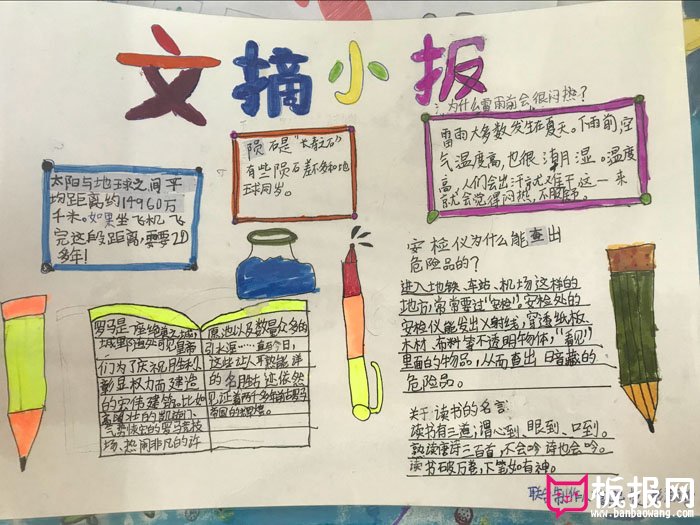 文摘小报
太阳与地球之间平
均距离约14960万
千米。如果坐飞机飞
完这段距离，需要20
多年！
陨石是"长寿石"
有些陨石差不多和地
球同岁。
为什么雷雨前会很闷热？
雷雨大多数发生在夏天。下雨前，空
气温度高，也很潮湿。温度
高，人们会出汗就难干这一来
就会觉得闷热，不舒服。
安检仪为什么能查出
危险品的？
进入地铁、车站、机场这样的
地市，常常要过"安检"。安检处的
安检仪能发出X射线，穿透纸板、
木材、布料等不透明物体，"看见"
里面的物品，从而查出暗藏的
危险品。
罗马是一座绝美之城，
城野周处可见皇帝
们为了庆祝胜利
彰显权力而建造
的宏伟建筑。比如
雄壮的凯旋门、
气势恢宏的罗马竞技
场、热闹非凡的许
愿池以及数量众多的
引水渠……直至今日，
这些让人不敢能详
的名胜古迹依然
见证着两千多年前古罗马
帝国的辉煌。
关于读书的名言
读书有三道，谓心到、眼到、口到。
熟读唐诗三百首，不会吟诗也会吟。
读书破万卷，下笔如有神。
制作人
板报网
www.banbaowang.com